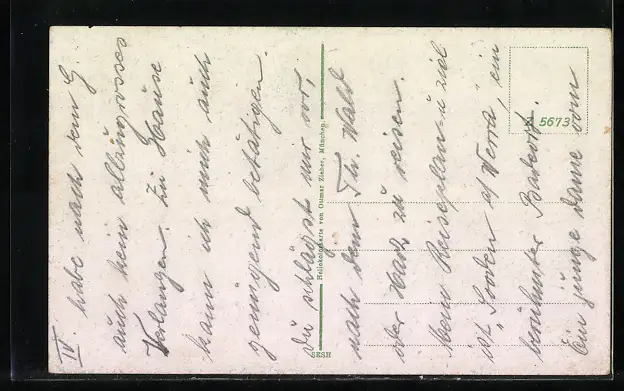 IV. habe nach dem G.
auch kein allzugrosses
Verlangen. Zu Hause
kann ich mich auch
genügend betätigen.
Du schlägst mir vor,
nach dem Th. Wald
oder Harz zu reisen.
kein Reiseplan u Ziel
ist Sooden a/Werra, ein
berühmter Badeort.
Ein junge Dame vom
Heliokolorkarte von Ottmar Zieher, München.
SESH
5673